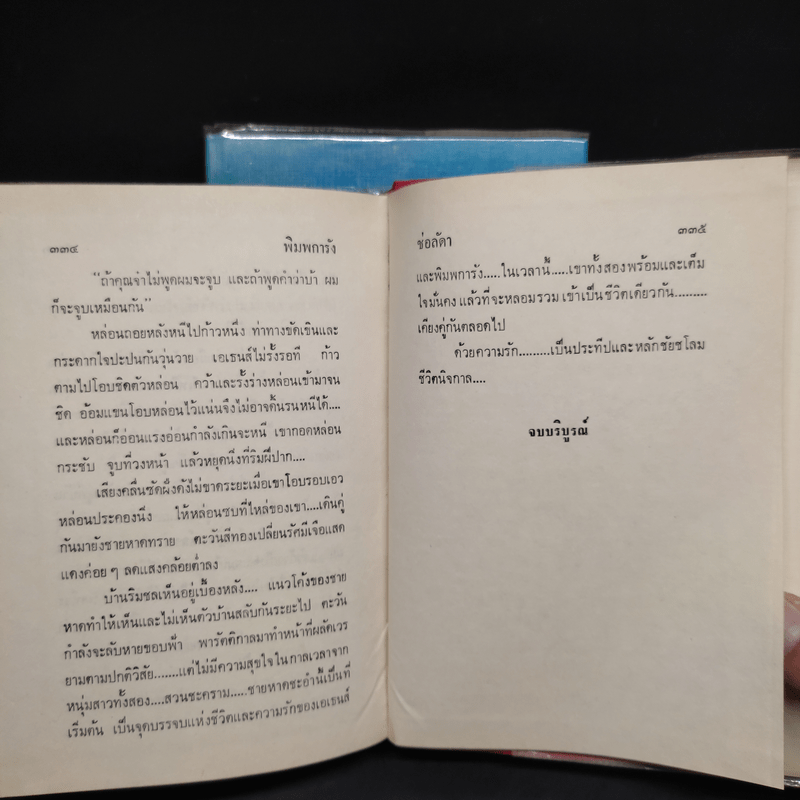 ๓๓๔ พิมพการัง
"ถ้าคุณจ๋าไม่พูดผมจะจูบ และถ้าพูดคำว่าบ้า ผม
ก็จะจูบเหมือนกัน"
หล่อนถอยหลังหนีไปก้าวหนึ่ง ท่าทางขัดเขินและ
กระดากใจปะปนกันวุ่นวาย เอเธนส์ไม่รั้งรอที ก้าว
ตามไปโอบชิดตัวหล่อน คว้าและรั้งร่างหล่อนเข้ามาจน
ชิด อ้อมแขนโอบหล่อนไว้แน่นจึงไม่อาจดิ้นรนหนีได้....
และหล่อนก็อ่อนแรงอ่อนกำลังเกินจะหนี เขากอดหล่อน
กระชับ จูบที่วงหน้า แล้วหยุดนิ่งที่ริมฝีปาก....
เสียงคลื่นซัดฝั่งดังไม่ขาดระยะเมื่อเขาโอบรอบเอว
หล่อนประคองนิ่ง ให้หล่อนซบที่ไหล่ของเขา....เดินคู่
กันมายังชายหาดทราย ตะวันสีทองเปลี่ยนรัศมีเจือแสด
แดงค่อย ๆ ลดแสงคล้อยต่ำลง
บ้านริมชลเห็นอยู่เบื้องหลัง.... แนวโค้งของชาย
หาดทำให้เห็นและไม่เห็นตัวบ้านสลับกันระยะไป ตะวัน
กำลังจะลับหายขอบฟ้า พารัตติกาลมาทำหน้าที่ผลัดเวร
ยามตามปกติวิสัย.......แต่ไม่มีความสุขใจในกาลเวลาจาก
หนุ่มสาวทั้งสอง....สวนชะคราม.....ชายหาดชะอำนี้เป็นที่
เริ่มต้น เป็นจุดบรรจบแห่งชีวิตและความรักของเอเธนส์
ช่อลัดา ๓๓๕
และพิมพการัง.....ในเวลานี้.....เขาทั้งสองพร้อมและเต็ม
ใจมั่นคง แล้วที่จะหลอมรวม เข้าเป็นชีวิตเดียวกัน.........
เคียงคู่กันตลอดไป
ด้วยความรัก.........เป็นประทีปและหลักชัยชโลม
ชีวิตนิจกาล....
จบบริบูรณ์